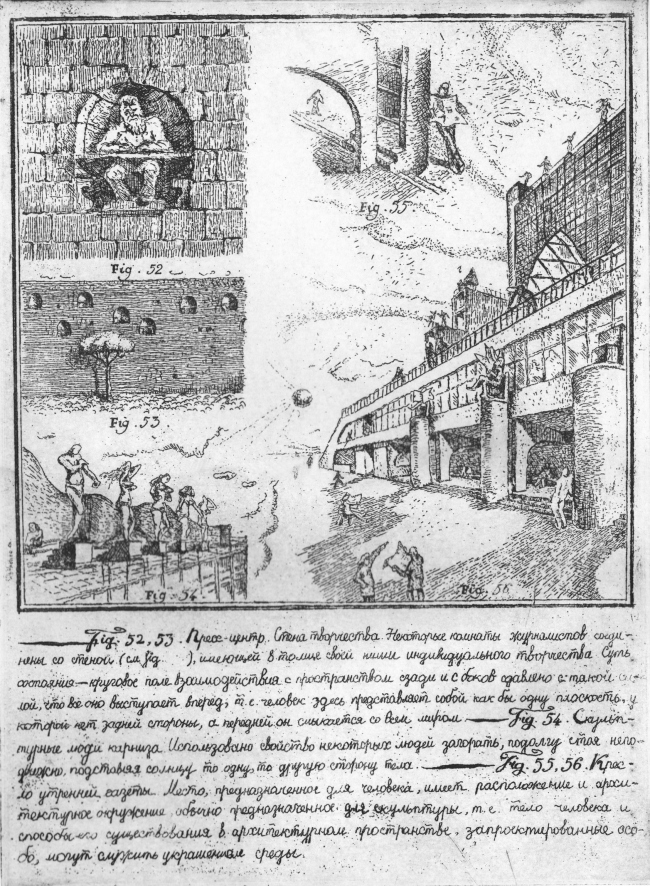 Fig. 55.
Fig. 52
Fig. 53.
Fig. 54.
Fig. 56
Fig. 52, 53. Пресс-центр. Стена творчества. Некоторые комнаты журналистов соеди-
нены со стеной (см. fig. ), имеющей в толще своей ниши индивидуального творчества. Суть
состояния – круговое поле взаимодействия с пространством сзади и с боков сдавлено с такой
лой, что всё оно выступает вперед, т.е. человек здесь представляет собой как бы одну плоскость, у
которой нет задней стороны, а передней он смыкается со всем миром. Fig. 54. Скульп-
турные люди карниза. Использовано свойство некоторых людей загорать, подолгу стоя непо-
движно, подставляя солнцу то одну, то другую сторону тела. Fig. 55, 56. Крес-
ло утренней газеты. Место, предназначенное для человека, имеет расположение и архи-
тектурное окружение, обычно предназначенное для скульптуры, т.е. тело человека и
способы его существования в архитектурном пространстве, запроектированные осо-
бо, могут служить украшением среды.